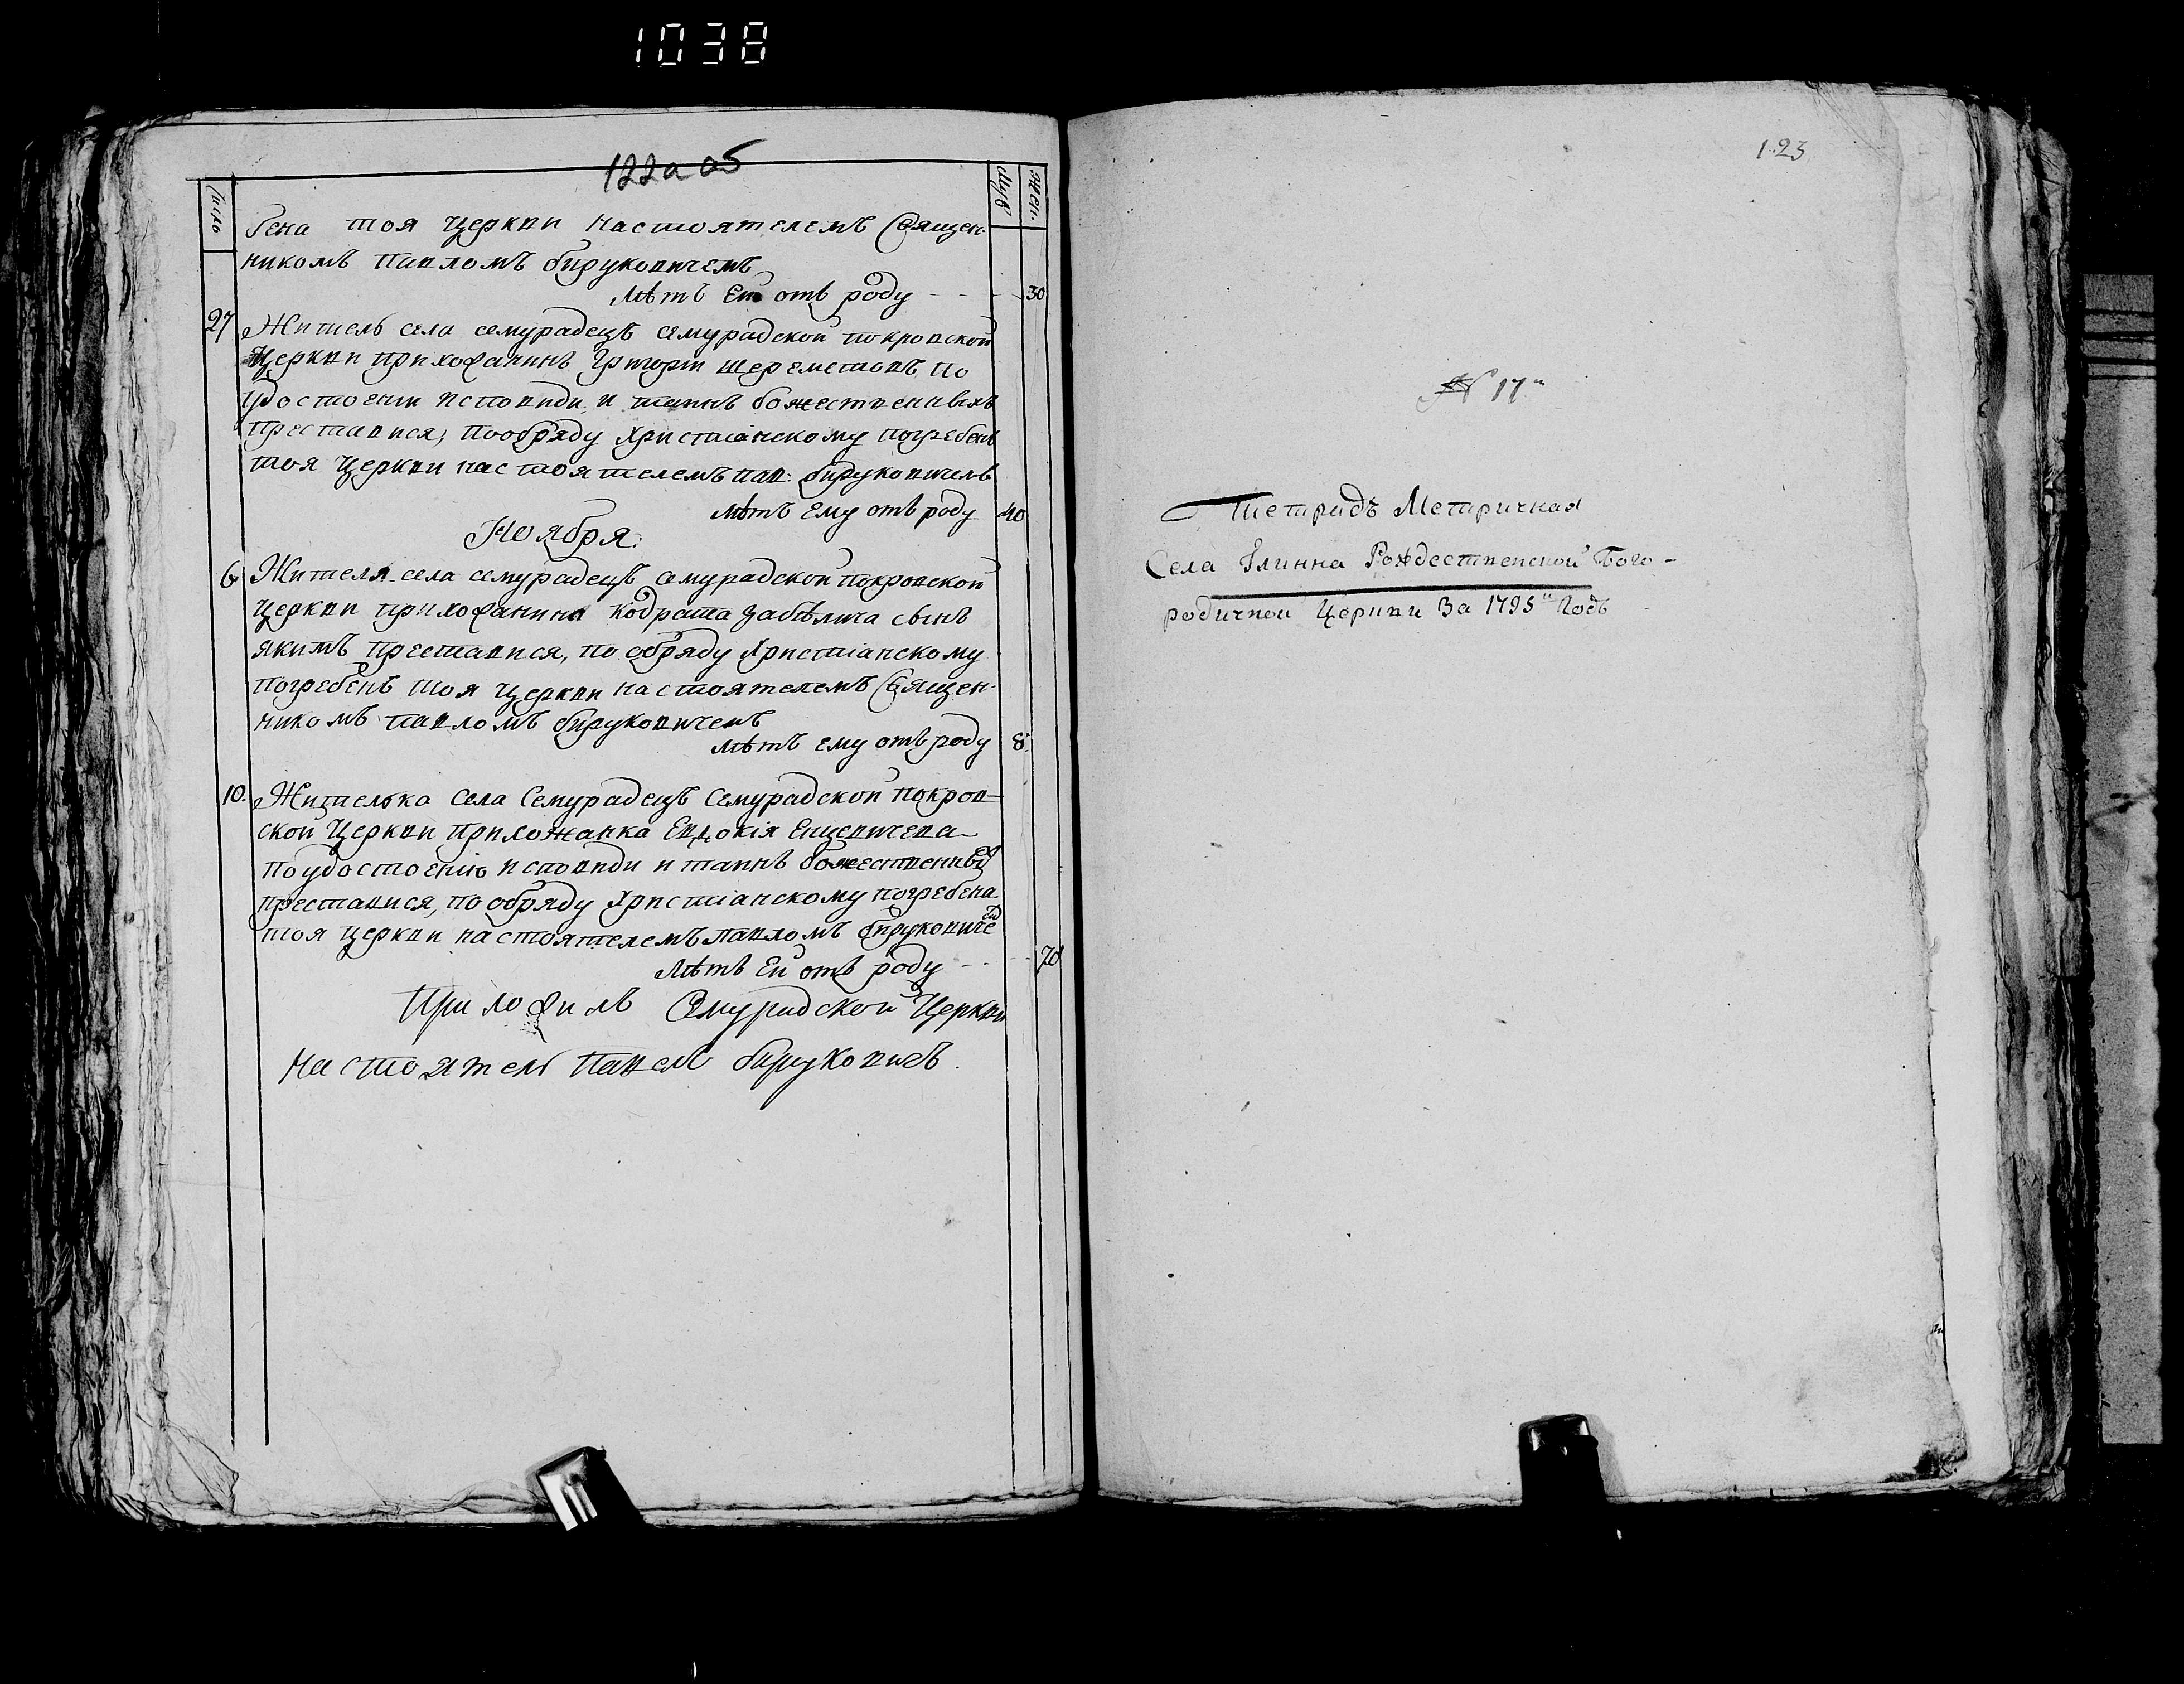 1038
122а об
Число
Муж.
Жен.
бена тоя церкви настоятелемъ Священ-
никомъ павломъ бируковичемъ
лѣтъ Ей отъ роду - - - 30
27 Житель села семурадецъ семурадской покровской
Церкви прихожанинъ Григорій шереметовъ по
удостоении исповиди и таинъ божественныхъ
преставися, пообряду христианскому погребенъ
тоя церкви настоятелемъ пав: бируковичемъ
лѣтъ Ему отъ роду 40
Ноября
6 Жителя села семурадецъ семурадской покровской
церкви прихожанина кодрата забѣлича сынъ
якимъ преставися, по обряду Христіанскому
погребенъ тоя церкви настоятелемъ Священ-
никомъ павломъ бируковичемъ
лѣтъ ему отъ роду 8.
10. Жителька села Семурадецъ Семурадской покров-
ской Церкви прихожанка Евдокія Енцевичева
по удостоению исповиди и таинъ божественныхъ
преставися, по обряду Христіанскому погребена
тоя церкви настоятелемъ павломъ бируковичемъ
лѣтъ Ей отъ роду - - - 70
Приложилъ Семурадской Церкви
настоятель павелъ бируковичъ.
123
№ 17й
Тетрадь Метричная
Села Глинна Рождественской Бого-
родичной Церкви За 1795й Годъ